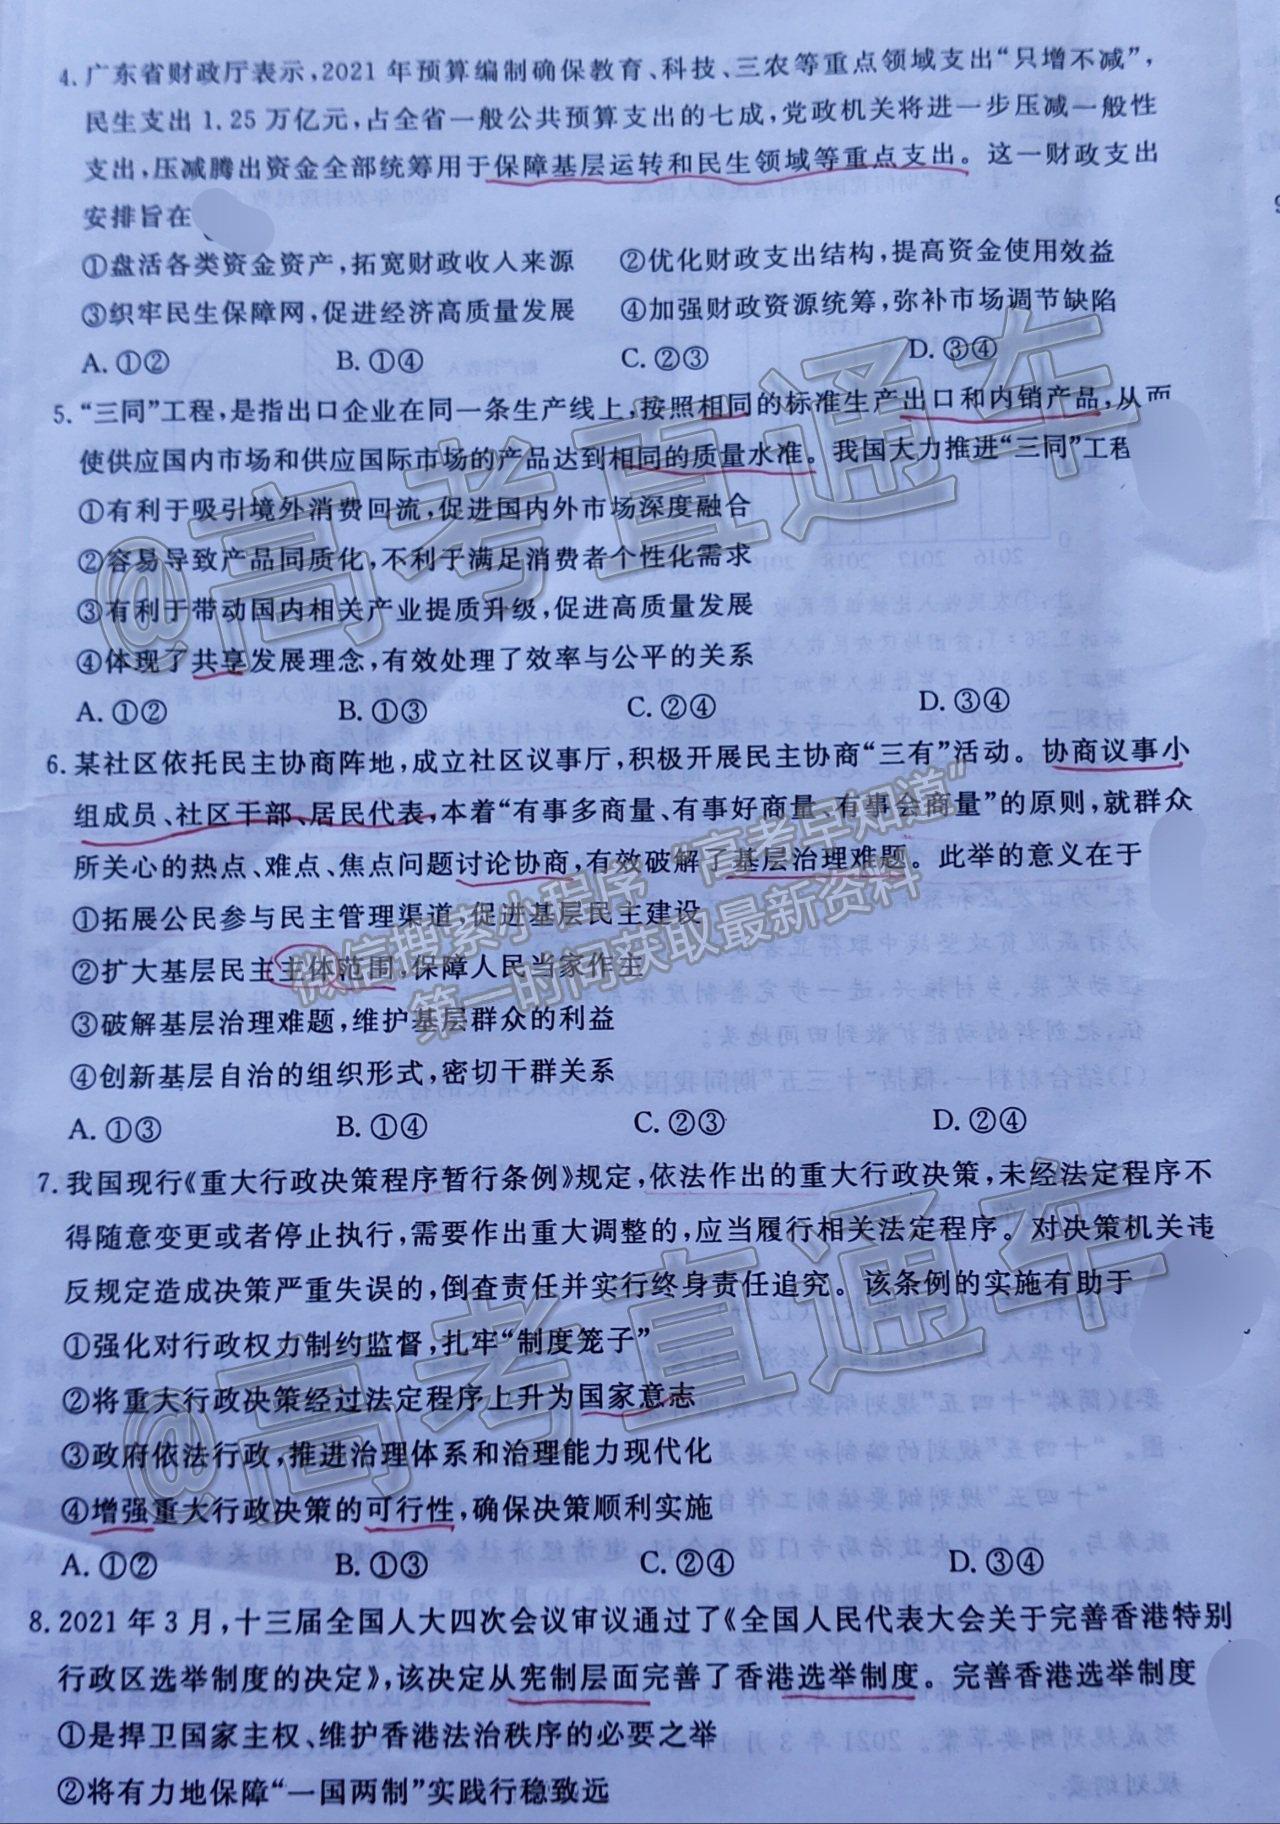 4. 广东省财政厅表示,2021年预算编制确保教育、科技、三农等重点领域支出“只增不减”,
民生支出1.25万亿元,占全省一般公共预算支出的七成,党政机关将进一步压减一般性
支出,压减腾出资金全部统筹用于保障基层运转和民生领域等重点支出。这一财政支出
安排旨在
①盘活各类资金资产,拓宽财政收入来源 ②优化财政支出结构,提高资金使用效益
③织牢民生保障网,促进经济高质量发展 ④加强财政资源统筹,弥补市场调节缺陷
A. ①② B. ①④ C. ②③ D. ③④
5. “三同”工程,是指出口企业在同一条生产线上,按照相同的标准生产出口和内销产品,从而
使供应国内市场和供应国际市场的产品达到相同的质量水准。我国大力推进“三同”工程
①有利于吸引境外消费回流,促进国内外市场深度融合
②容易导致产品同质化,不利于满足消费者个性化需求
③有利于带动国内相关产业提质升级,促进高质量发展
④体现了共享发展理念,有效处理了效率与公平的关系
A. ①② B. ①③ C. ②④ D. ③④
6. 某社区依托民主协商阵地,成立社区议事厅,积极开展民主协商“三有”活动。协商议事小
组成员、社区干部、居民代表,本着“有事多商量、有事好商量、有事会商量”的原则,就群众
所关心的热点、难点、焦点问题讨论协商,有效破解了基层治理难题。此举的意义在于
①拓展公民参与民主管理渠道,促进基层民主建设
②扩大基层民主主体范围,保障人民当家作主
③破解基层治理难题,维护基层群众的利益
④创新基层自治的组织形式,密切干群关系
A. ①③ B. ①④ C. ②③ D. ②④
7. 我国现行《重大行政决策程序暂行条例》规定,依法作出的重大行政决策,未经法定程序不
得随意变更或者停止执行,需要作出重大调整的,应当履行相关法定程序。对决策机关违
反规定造成决策严重失误的,倒查责任并实行终身责任追究。该条例的实施有助于
①强化对行政权力制约监督,扎牢“制度笼子”
②将重大行政决策经过法定程序上升为国家意志
③政府依法行政,推进治理体系和治理能力现代化
④增强重大行政决策的可行性,确保决策顺利实施
A. ①② B. ①③ C. ②④ D. ③④
8. 2021年3月,十三届全国人大四次会议审议通过了《全国人民代表大会关于完善香港特别
行政区选举制度的决定》,该决定从宪制层面完善了香港选举制度。完善香港选举制度
①是捍卫国家主权、维护香港法治秩序的必要之举
②将有力地保障“一国两制”实践行稳致远
@高考直通车
微信搜索小程序“高考早知道”
第一时间获取最新资料
@高考直通车